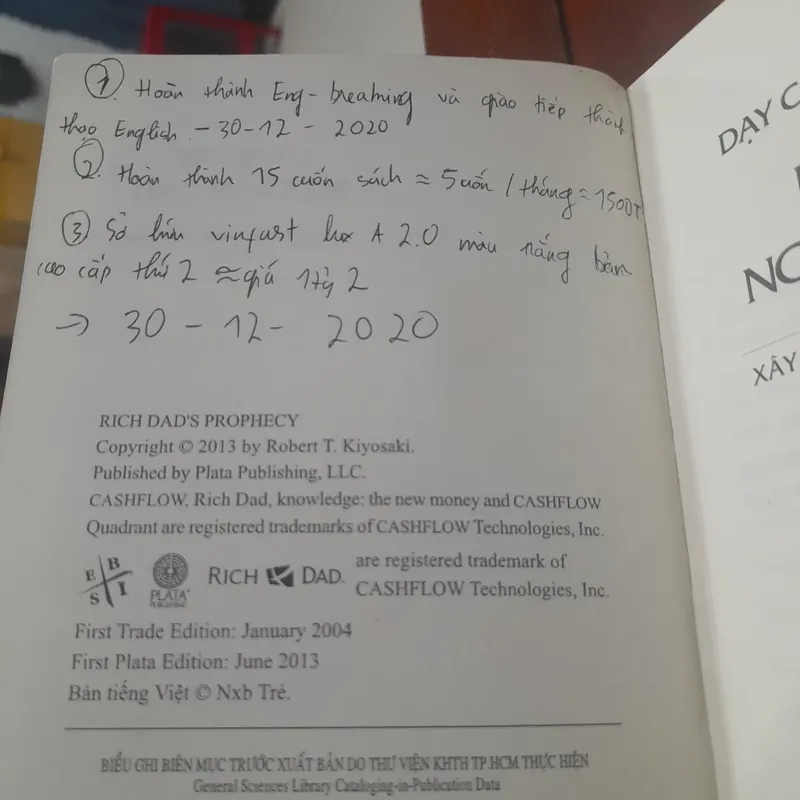 1. Hoàn thành Eng-breaming và giao tiếp thành
thạo English. - 30-12 - 2020
2. Hoàn thành 15 cuốn sách ≈ 5 cuốn / tháng = 1500T
3 Sở hữu vinfast lux A 2.0 màu nắng bản
cao cấp thứ 2 ≈ giá 1 tỷ 2
→ 30 - 12 - 2020
RICH DAD'S PROPHECY
Copyright © 2013 by Robert T. Kiyosaki.
Published by Plata Publishing, LLC.
CASHFLOW, Rich Dad, knowledge: the new money and CASHFLOW
Quadrant are registered trademarks of CASHFLOW Technologies, Inc.
E B S I PLATA PUBLISHING RICH DAD. are registered trademark of
CASHFLOW Technologies, Inc.
First Trade Edition: January 2004
First Plata Edition: June 2013
Bản tiếng Việt © Nxb Trẻ.
BIỂU GHI BIÊN MỤC TRƯỚC XUẤT BẢN DO THƯ VIỆN KHTH TP.HCM THỰC HIỆN
General Sciences Library Cataloging-in-Publication Data
DẠY C
NG
XÂY